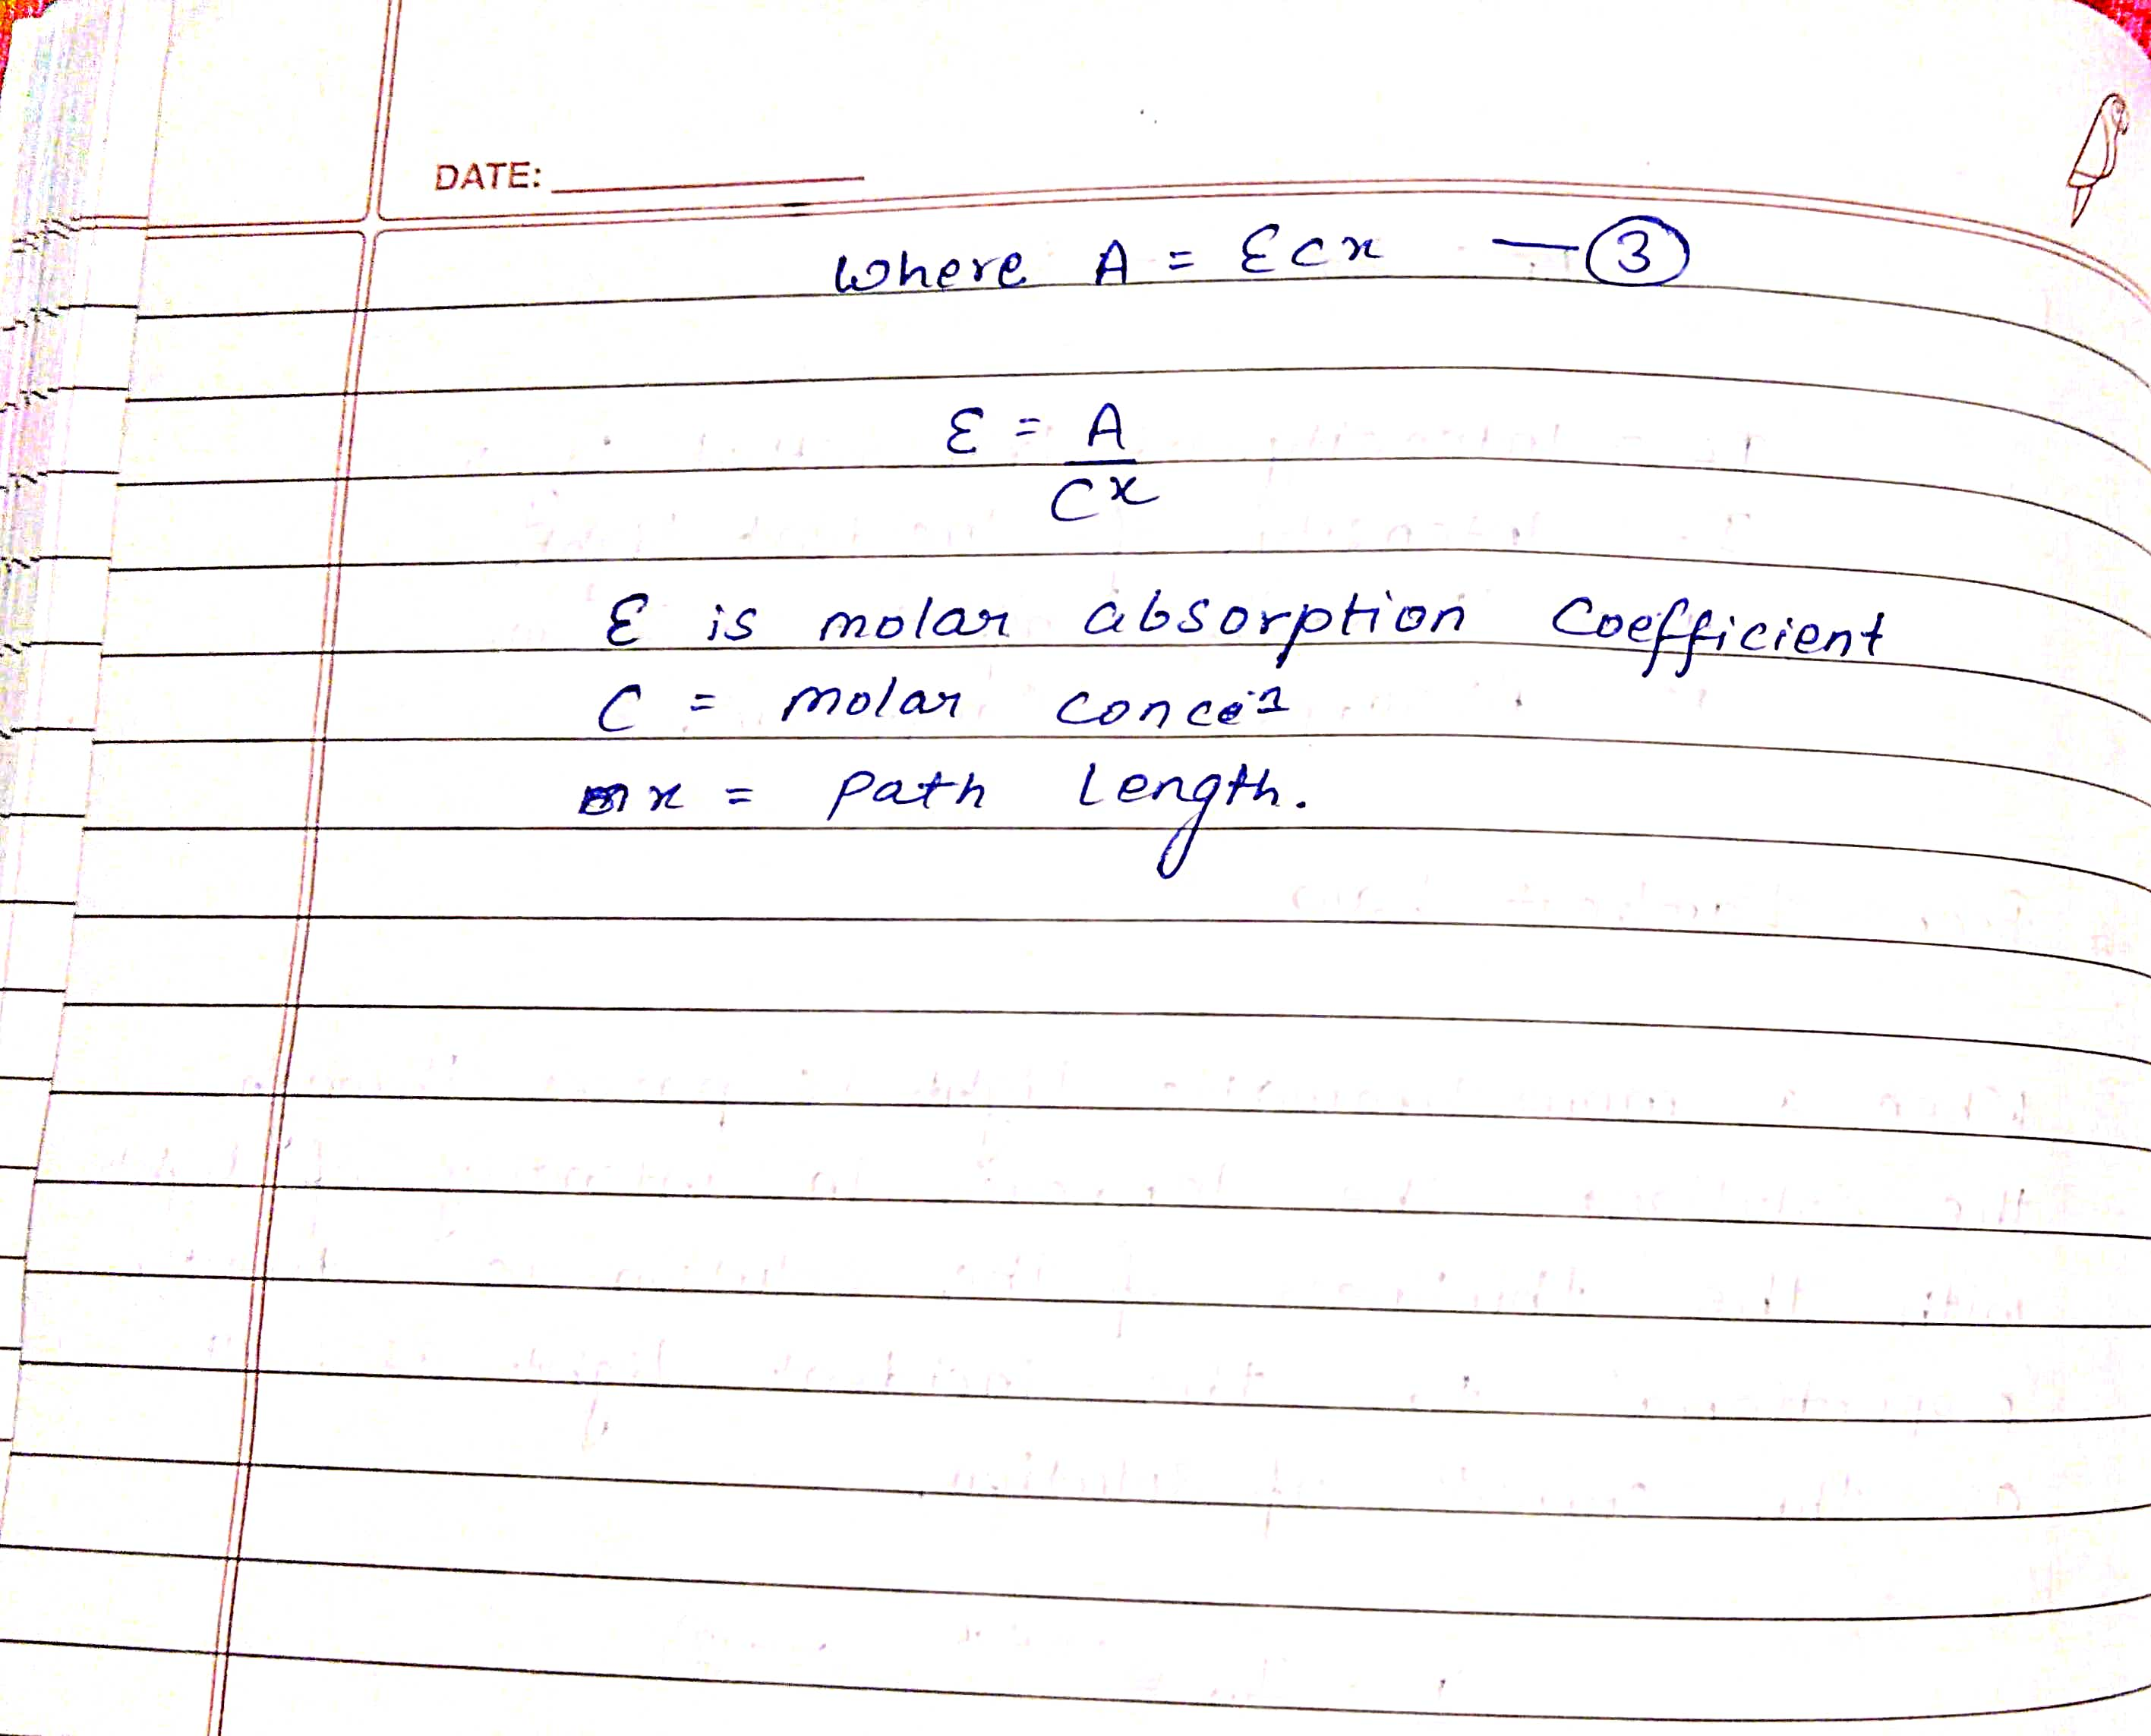 DATE:
where A = εcx — ③
ε = A
cx
ε is molar absorption coefficient
C = molar
x = path length.